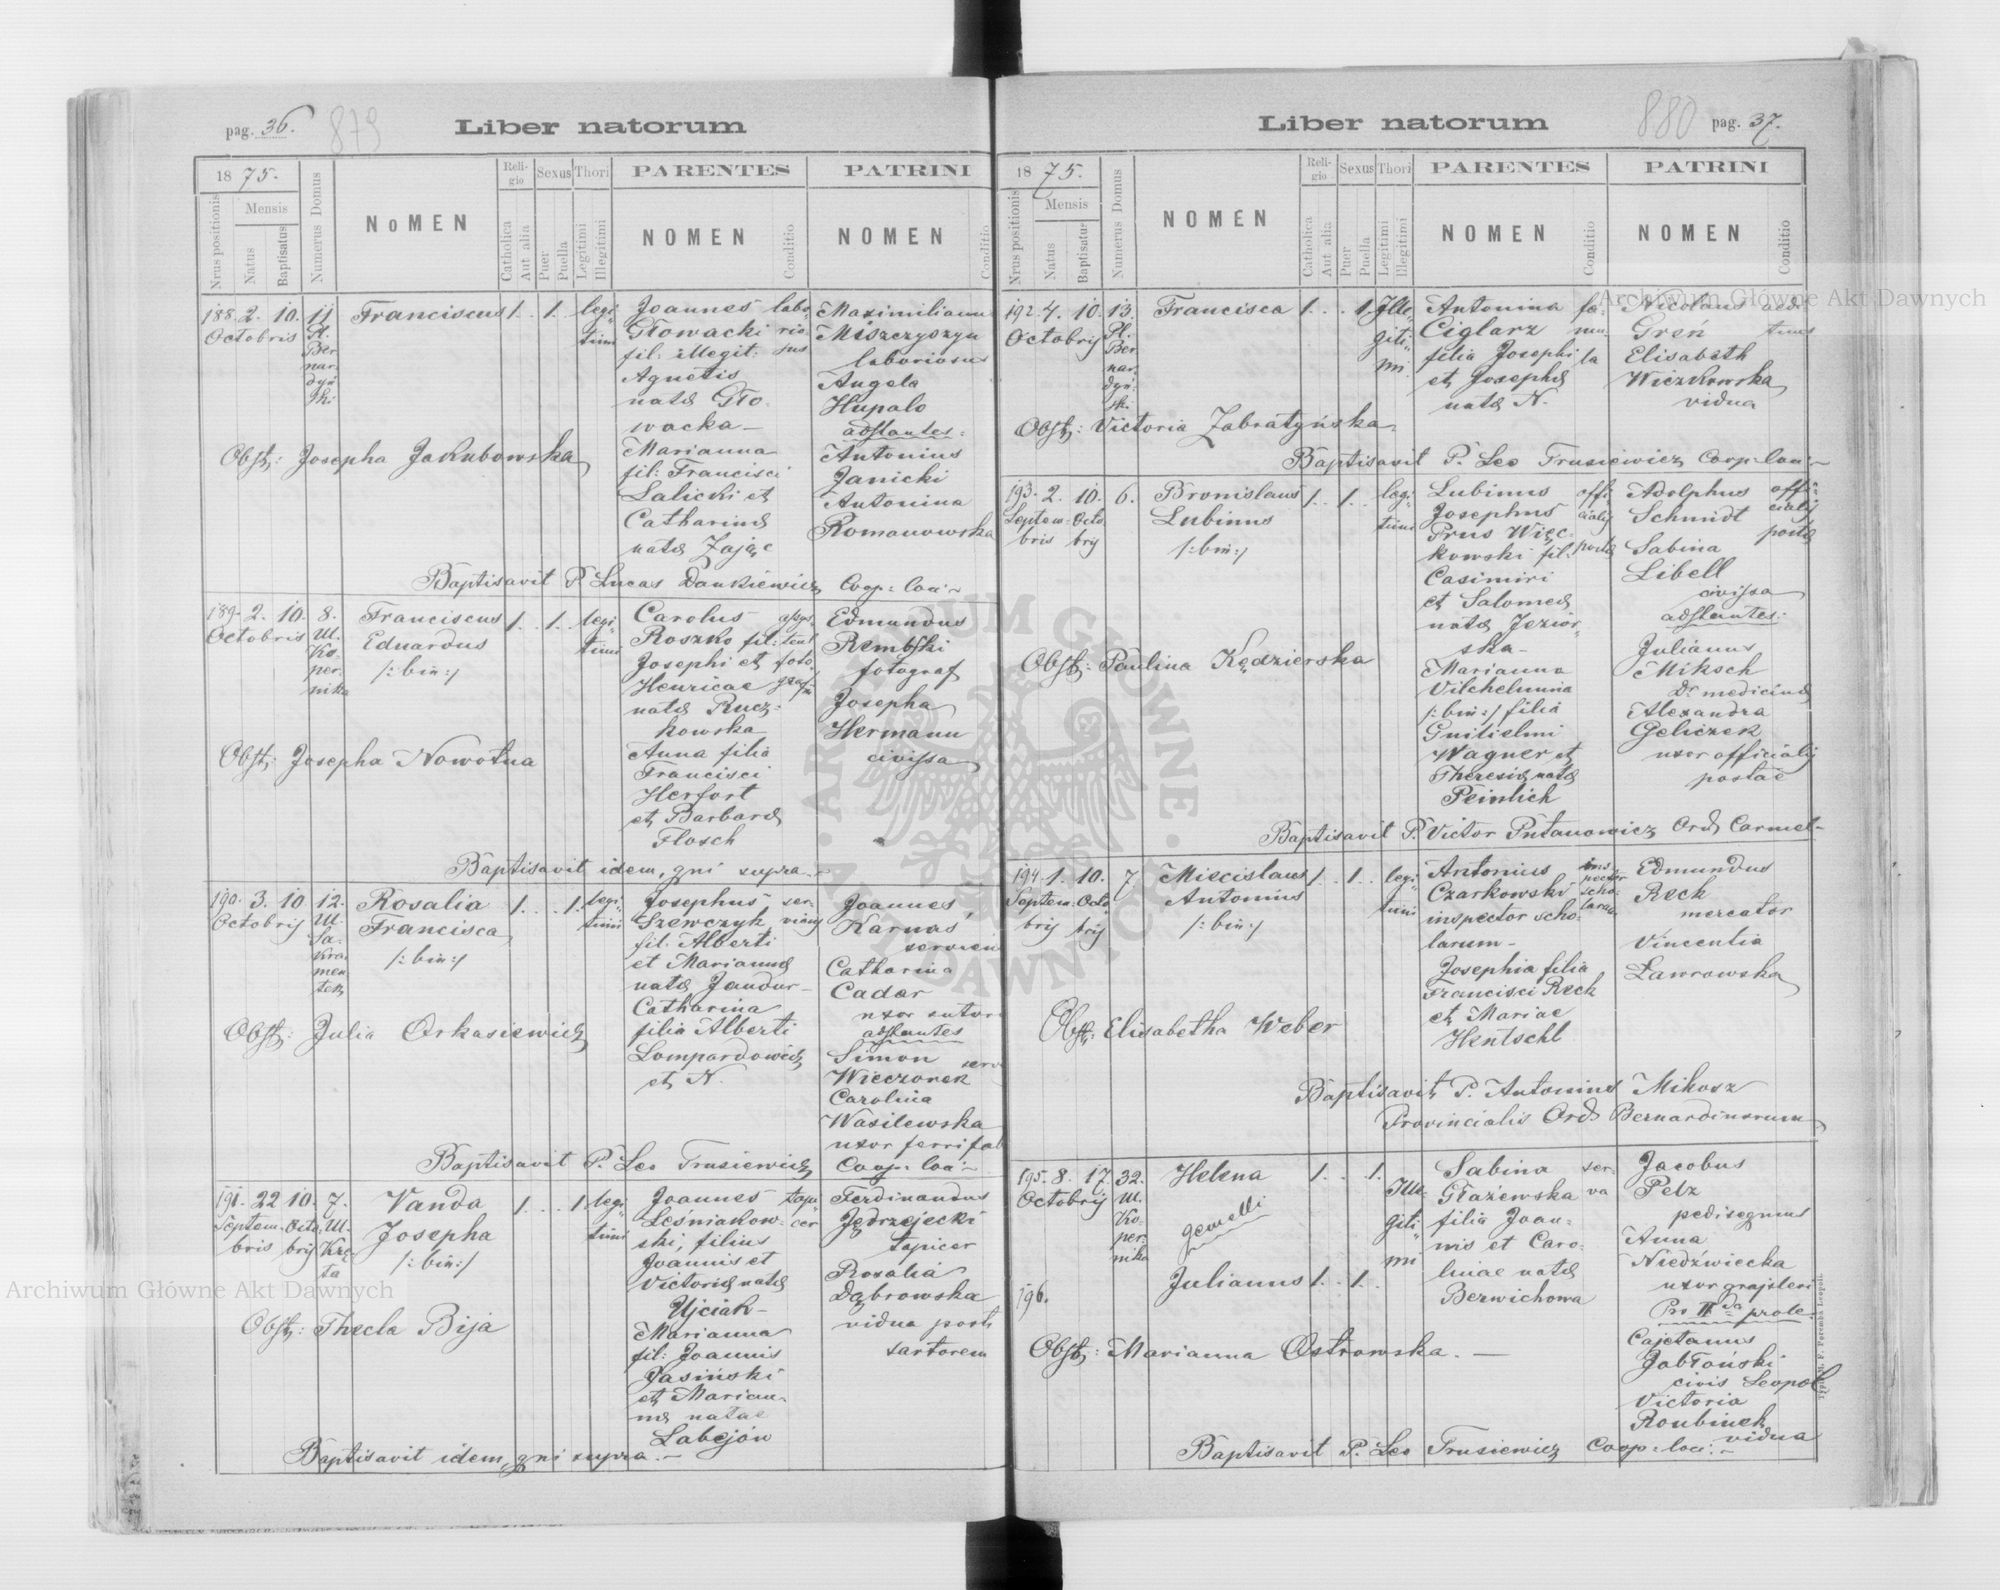 pag. 36.
879
Liber natorum
18 75.
Mensis
Nrus positionis
Natus
Baptisatus
Numerus Domus
NOMEN
Religio
Catholica
Aut alia
Sexus
Puer
Puella
Thori
Legitimi
Illegitimi
PARENTES
NOMEN
Conditio
PATRINI
NOMEN
Conditio
188. 2. 10. 11
Octobris Pl.
Ber
nar
dyń
ski
Franciscus 1. . 1. legi
timi
Joannes labo
Głowacki rio
fil: illegit: sus
Agnetis
natæ Gło-
wacka –
Marianna
fil: Francisci
Salicki et
Catharinæ
natæ Zając
Maximilianus
Miszczyszyn
laboriosus
Angela
Hupalo
adstantes:
Antonius
Janicki
Antonina
Romanowska
Obst: Josepha Jakubowska
Baptisavit P. Lucas Dankiewicz Coop: loci
189. 2. 10. 8.
Octobris Ul.
Ko-
per-
nika
Franciscus
Eduardus
/: bin :/
1. . 1. legi
timi
Carolus assys-
Roszko fil: tent
Josephi et foto
Henricae graf
natæ Rucz-
kowska
Anna filia
Francisci
Herfort
et Barbaræ
Flosch
Edmundus
Rembski
fotograf
Josepha
Hermann
civissa
Obst: Josepha Nowotna
Baptisavit idem, qui supra –
190. 3. 10 12.
Octobris Ul.
Sa-
kra
men
tek
Rosalia
Francisca
/: bin :/
1. . . 1. legi
timi
Josephus ser-
Szewczyk viens
fil: Alberti
et Mariannæ
natæ Jandur –
Catharina
filia Alberti
Lompardowicz
et N.
Joannes
Karnas
servien
Catharina
Cadar
uxor sutori
adstantes
Simon
Wieczorek serv
Carolina
Wasilewska
uxor ferrifab
Obst: Julia Arkasiewicz
Baptisavit P. Leo Trusiewicz Coop: loci –
191. 22 10. 7.
Septem- Octo Ul.
bris bris Krę
ta
Vanda
Josepha
/: bin :/
1. . . 1 legi
timi
Joannes tapi
Leśniakow- cer
ski, filius
Joannis et
Victoriæ natæ
Ujciak –
Marianna
fil: Joannis
Jasiński
et Marian-
næ natae
Labejón
Ferdinandus
Jędrzejecki
tapicer
Rosalia
Dąbrowska
vidua post
sartorem
Obst: Thecla Bija
Baptisavit idem, qui supra. –
Liber natorum
880
pag. 37.
18 75.
Mensis
Nrus positionis
Natus
Baptisatus
Numerus Domus
NOMEN
Religio
Catholica
Aut alia
Sexus
Puer
Puella
Thori
Legitimi
Illegitimi
PARENTES
NOMEN
Conditio
PATRINI
NOMEN
Conditio
192. 4. 10. 13.
Octobris Pl.
Ber
nar
dyń
ski
Francisca 1. . . 1. Ille-
giti
mi
Antonina fa-
Ciglarz mu
filia Josephi la
et Josephæ
natæ N.
Nicolaus aedi
Greń tuus
Elisabeth
Wiczkowska
vidua
Obst: Victoria Zabratyńska
Baptisavit P. Leo Trusiewicz Coop: loci –
193. 2. 10. 6.
Septem- Octo
bris bris
Bronislaus
Lubinus
/: bin :/
1. . 1. . legi
timi
Lubinus offi
Josephus cialis
Prus Więc-
kowski fil: postæ
Casimiri
et Salomeæ
natæ Jezior-
ska –
Marianna
Vilchelmina
/: bin :/ filia
Guilielmi
Wagner et
Theresiæ natæ
Peinlich
Adolphus offi
Schmidt cialis
postæ
Sabina
Libell
civissa
adstantes:
Julianus
Miksch
Dr medicinæ
Alexandra
Geliczek
uxor officialis
postae
Obst: Paulina Kędzierska
Baptisavit P. Victor Pntanowicz Ord. Carmel –
194. 1. 10. 7
Septem- Octo
bris bris
Miecislaus
Antonius
/: bin :/
1. . 1. . legi
timi
Antonius ins-
pector
Czarkowski scho
inspector scho- larum
larum –
Josephia filia
Francisci Reck
et Mariae
Hentschl
Edmundus
Reck
mercator
Vincentia
Ławrowska
Obst: Elisabetha Weber
Baptisavit P. Antonius Mikosz
Provincialis Ord. Bernardinorum
195. 8. 17. 32.
Octobris Ul.
Ko-
per-
nika
Helena 1. . . 1. Ille-
giti
mi
gemelli
196. Julianus 1. . 1.
Sabina ser-
Głażewska va
filia Joan-
nis et Caro-
linae natæ
Berwichowa
Jacobus
Pelz
pedisequus
Anna
Niedźwiecka
uxor grajsleri
Pro IIda prole:
Cajetanus
Jabłoński
civis Leopol
Victoria
Roubinek
vidua
Obst: Marianna Ostrowska. –
Baptisavit P. Leo Trusiewicz Coop: loci: –
Archiwum Główne Akt Dawnych
Archiwum Główne Akt Dawnych
ARCHIWUM GŁÓWNE AKT DAWNYCH